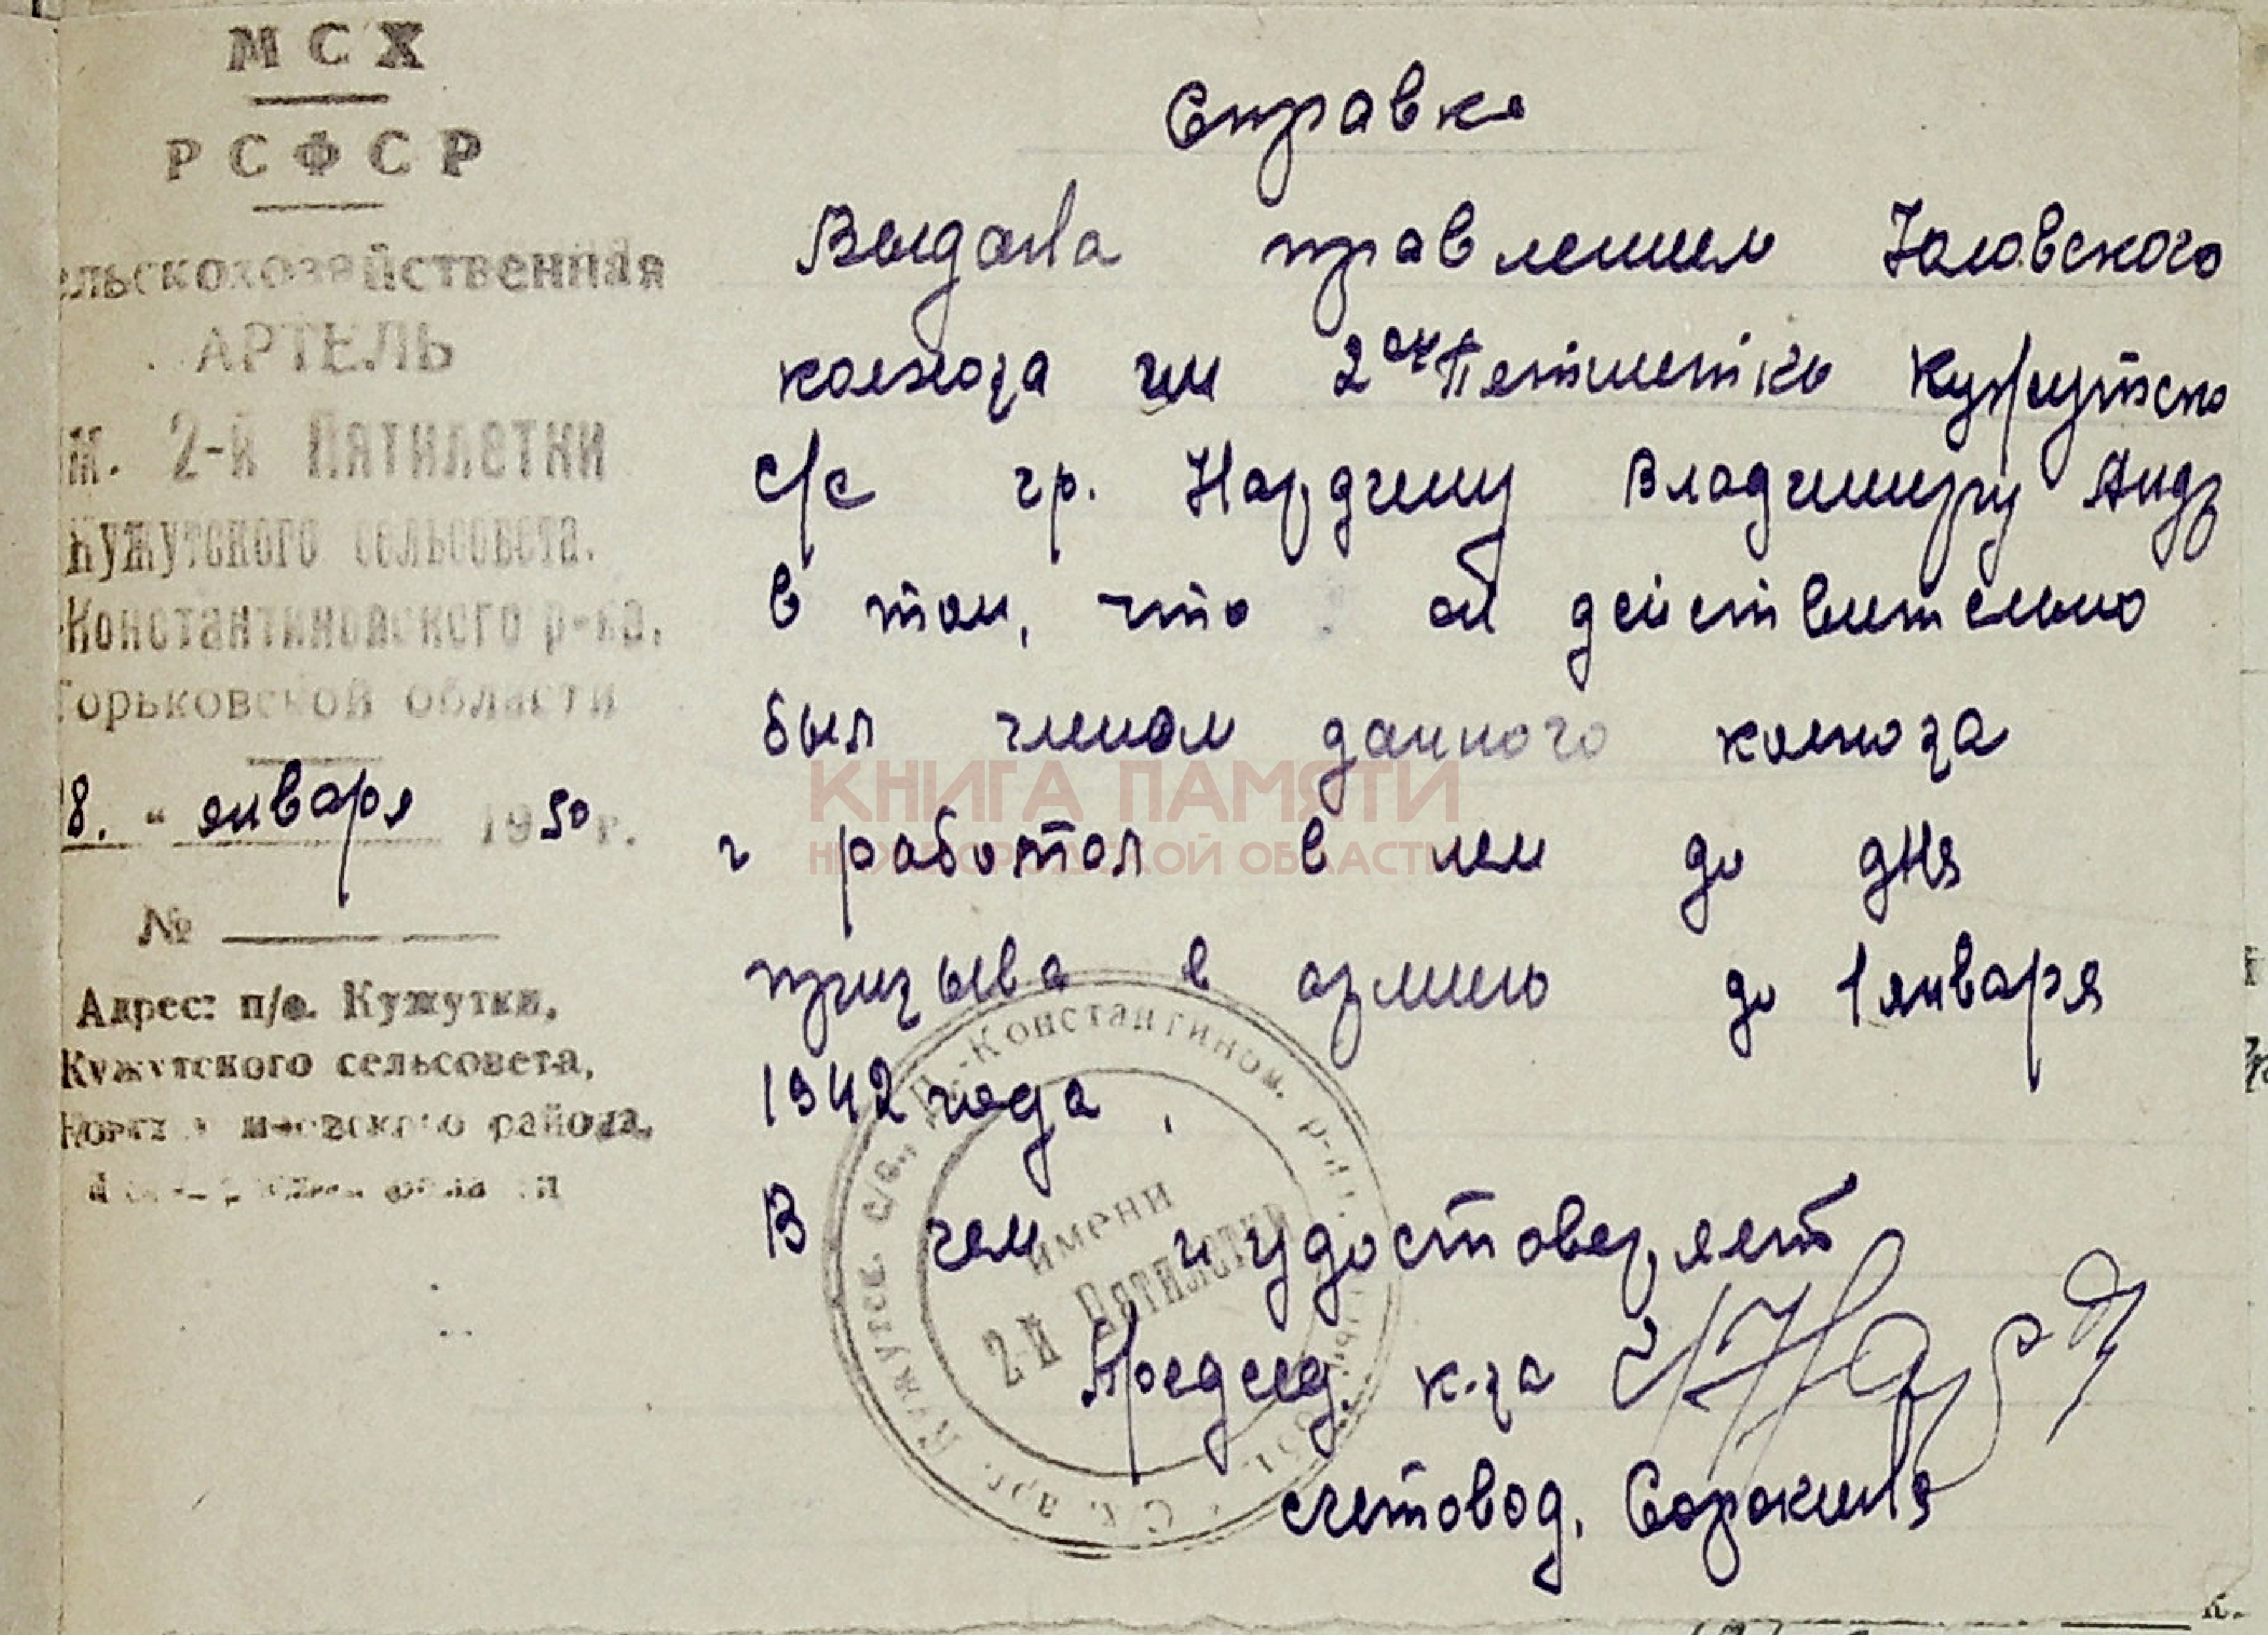 МСХ
РСФСР
ельскохозяйственная
АРТЕЛЬ
им. 2-й Пятилетки
Кужутского сельсовета.
Константиновского р-на.
Горьковской области
8. " января 1950 г.
№
Адрес: п/о. Кужутки,
Кужутского сельсовета,
района,
Справка
Выдана правлением
колхоза им 2ой Пятилетки Кужутско
с/с гр. Нардину Владимиру Андр
в том, что он действительно
был членом данного колхоза
и работал в нем до дня
призыва в армию до 1 января
1942 года.
В чем и удостоверяет
Председ. к-за
счетовод. Сорокина
С.х. арт. Кужутск. с/с., Д.-Константинов. р-на
имени
2-й Пятилетки
КНИГА ПАМЯТИ
НИЖЕГОРОДСКОЙ ОБЛАСТИ